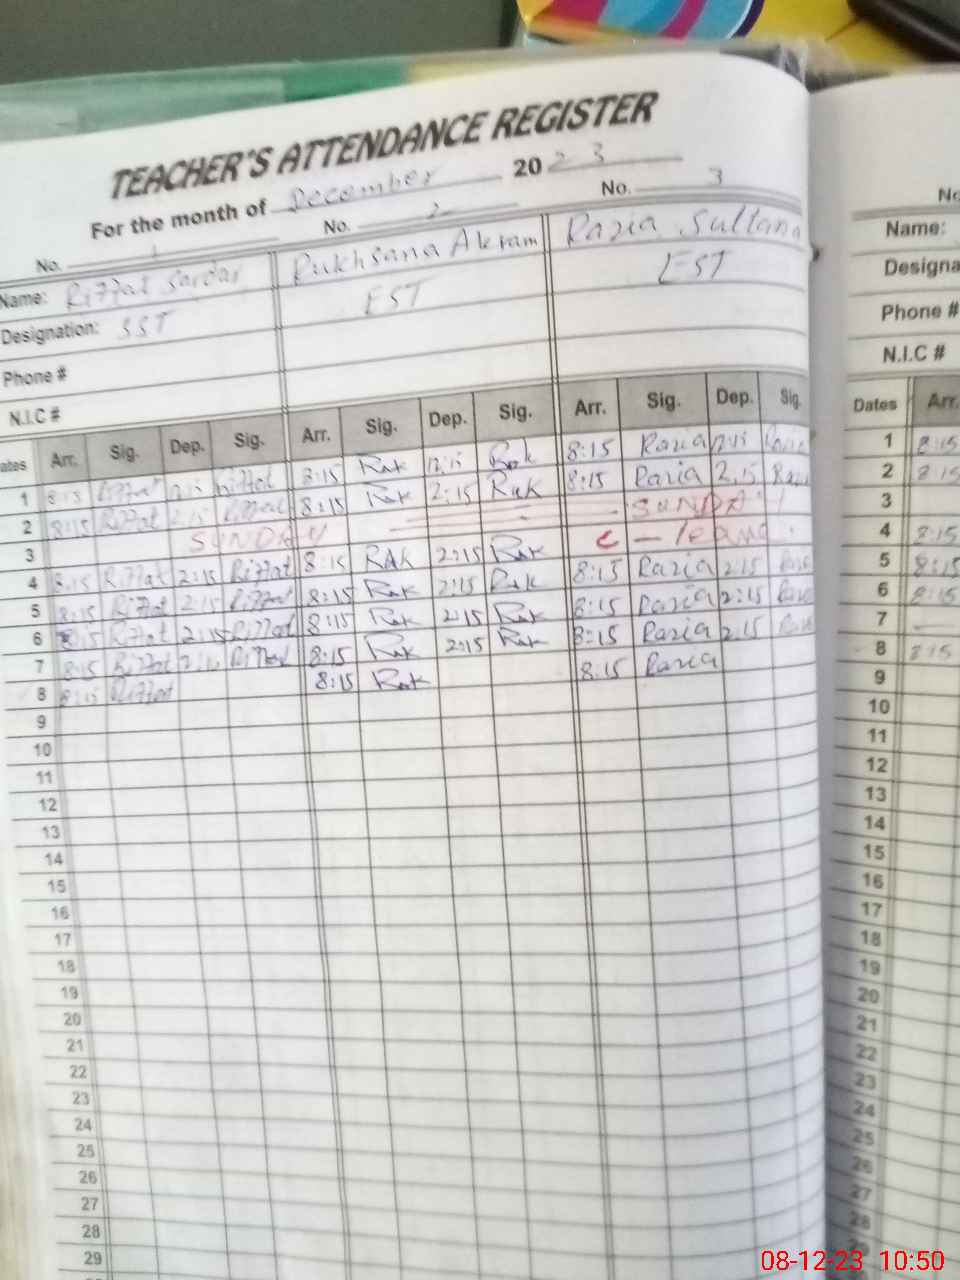 TEACHER'S ATTENDANCE REGISTER
For the month of December 2023
No. 1 No. 2 No. 3
Name: Riffat Sardar Rukhsana Akram Razia Sultana
Designation: SST EST EST
Phone #
N.I.C #
Dates Arr. Sig. Dep. Sig. Arr. Sig. Dep. Sig. Arr. Sig. Dep. Sig.
1 8:15 Riffat 12:15 Riffat 8:15 Rak 12:15 Rak 8:15 Razia 12:15 Razia
2 8:15 Riffat 2:15 Riffat 8:15 Rak 2:15 Rak 8:15 Razia 2:15 Razia
3 SUNDAY SUNDAY
4 8:15 Riffat 2:15 Riffat 8:15 RAK 2:15 Rak C - leave
5 8:15 Riffat 2:15 Riffat 8:15 Rak 2:15 Rak 8:15 Razia 2:15 Razia
6 8:15 Riffat 2:15 Riffat 8:15 Rak 2:15 Rak 8:15 Razia 2:15 Razia
7 8:15 Riffat 2:15 Riffat 8:15 Rak 2:15 Rak 8:15 Razia 2:15 Razia
8 8:15 Riffat 8:15 Rak 8:15 Razia
9
10
11
12
13
14
15
16
17
18
19
20
21
22
23
24
25
26
27
28
29
No
Name:
Designa
Phone #
N.I.C #
Dates Arr.
1 8:15
2 8:15
3
4 8:15
5 8:15
6 8:15
7
8 8:15
9
10
11
12
13
14
15
16
17
18
19
20
21
22
23
24
25
26
27
28
08-12-23 10:50